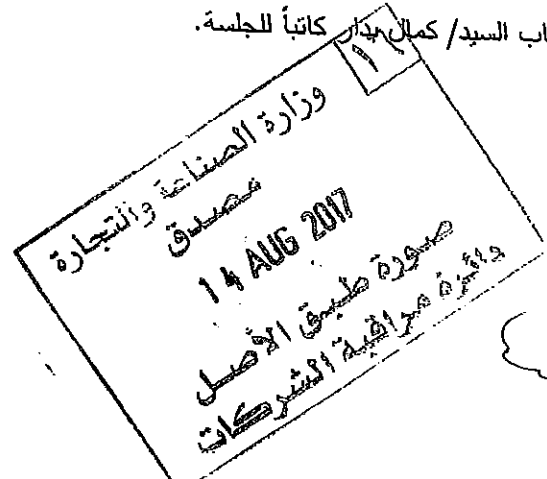 اب السيد/ كمال بدار كاتباً للجلسة.
١٦
وزارة الصناعة والتجارة
مصدق
14 AUG 2017
صورة طبق الأصل
دائرة مراقبة الشركات